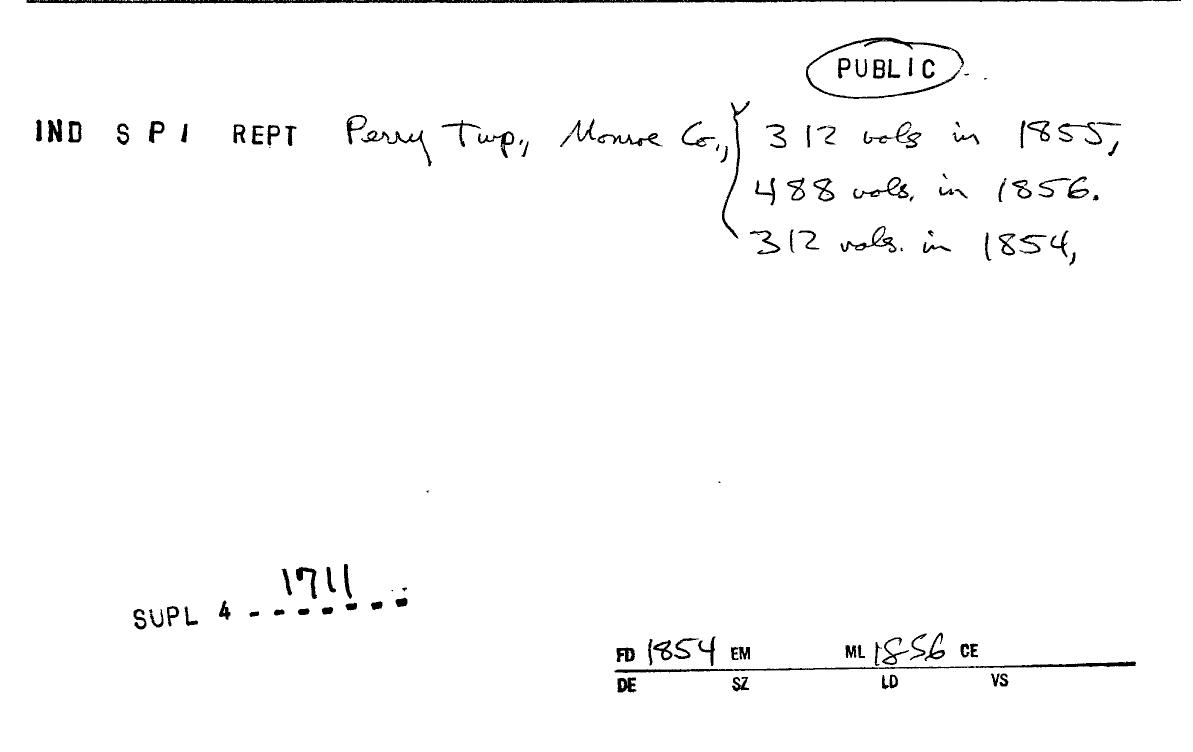 PUBLIC
IND S P I REPT Perry Twp., Monroe Co., 312 vols in 1855,
488 vols. in 1856.
312 vols. in 1854,
1711
SUPL 4 - - - - - - -
FD 1854 EM ML 1856 CE
DE SZ LD VS